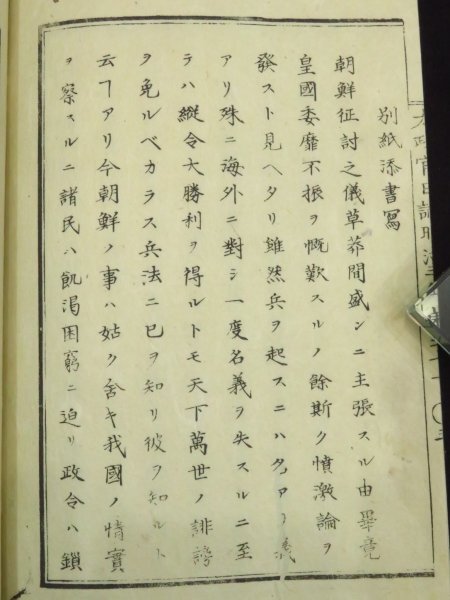 別紙添書寫
朝鮮征討之儀草莽間盛ンニ主張スル由畢竟
皇國委靡不振ヲ慨歎スルノ餘斯ク憤激論ヲ
發スト見ヘタリ雖然兵ヲ起スニハ名アリ義
アリ殊ニ海外ニ對シ一度名義ヲ失スルニ至
テハ縱令大勝利ヲ得ルトモ天下萬世ノ誹謗
ヲ免ルベカラス兵法ニ已ヲ知リ彼ヲ知ルト
云フアリ今朝鮮ノ事ハ姑ク舎キ我國ノ情實
ヲ察スルニ諸民ハ飢渇困窮ニ迫リ政令ハ鎖
太政官日誌明治三